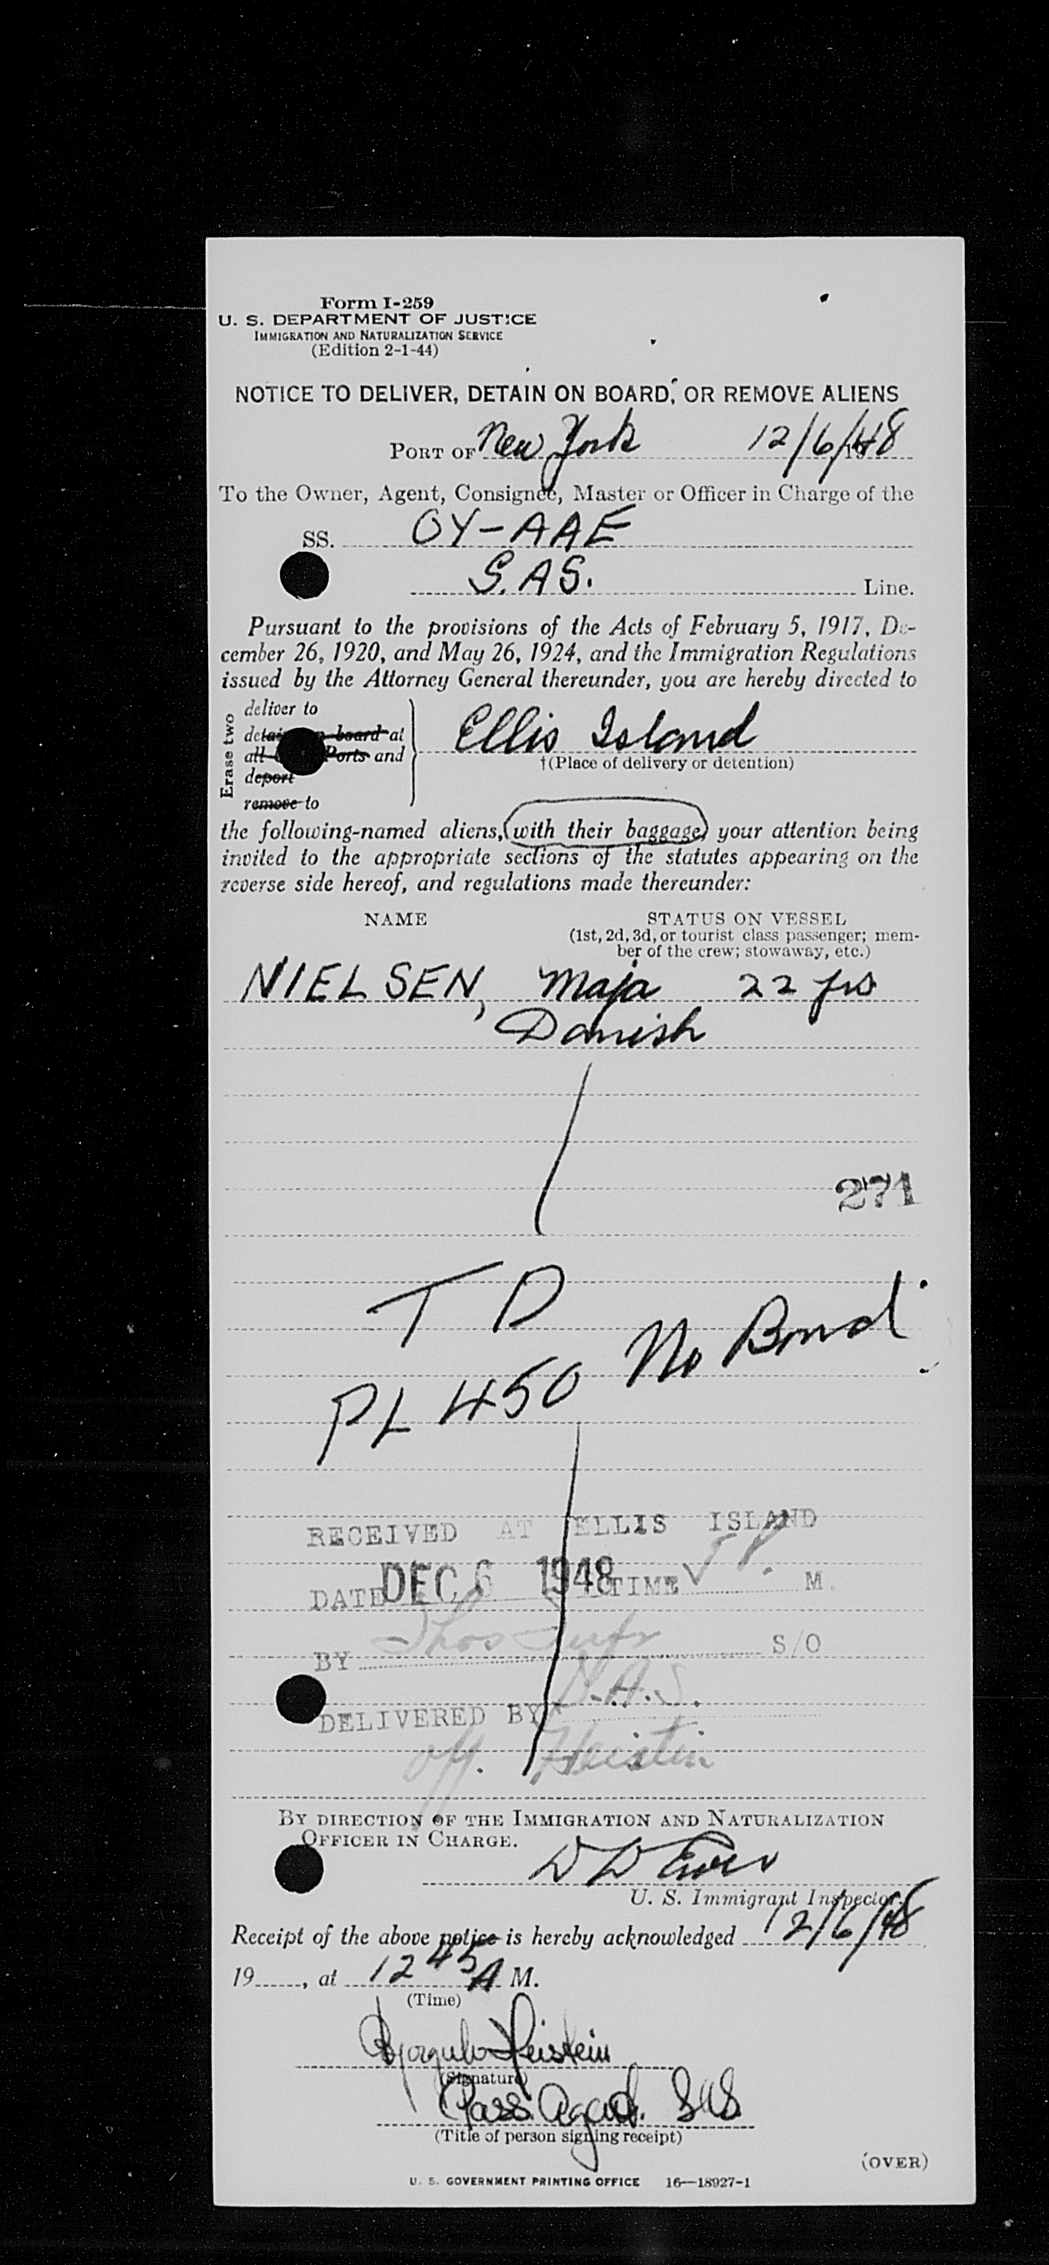 Form I-259
U. S. DEPARTMENT OF JUSTICE
IMMIGRATION AND NATURALIZATION SERVICE
(Edition 2-1-44)
NOTICE TO DELIVER, DETAIN ON BOARD, OR REMOVE ALIENS
PORT OF New York 12/6/48
To the Owner, Agent, Consignee, Master or Officer in Charge of the
SS. OY-AAE
S.A.S. Line.
Pursuant to the provisions of the Acts of February 5, 1917, De-
cember 26, 1920, and May 26, 1924, and the Immigration Regulations
issued by the Attorney General thereunder, you are hereby directed to
Erase two
deliver to
board at
all Ports and
deport
remove to
Ellis Island
†(Place of delivery or detention)
the following-named aliens, with their baggage, your attention being
invited to the appropriate sections of the statutes appearing on the
reverse side hereof, and regulations made thereunder:
NAME STATUS ON VESSEL
(1st, 2d, 3d, or tourist class passenger; mem-
ber of the crew; stowaway, etc.)
NIELSEN, Maja 22 yrs
Danish
271
TD
PL 450 No Bond
RECEIVED AT ELLIS ISLAND
DATE DEC 6 1948 TIME M.
BY Thos S/O
DELIVERED BY S.A.S.
off. Heistein
BY DIRECTION OF THE IMMIGRATION AND NATURALIZATION
OFFICER IN CHARGE.
U. S. Immigrant Inspector.
Receipt of the above notice is hereby acknowledged 12/6/48
19, at 12 45 A M.
(Time)
Heistein
(Signature)
Pass. Agent. SAS
(Title of person signing receipt)
(OVER)
U. S. GOVERNMENT PRINTING OFFICE 16—18927-1